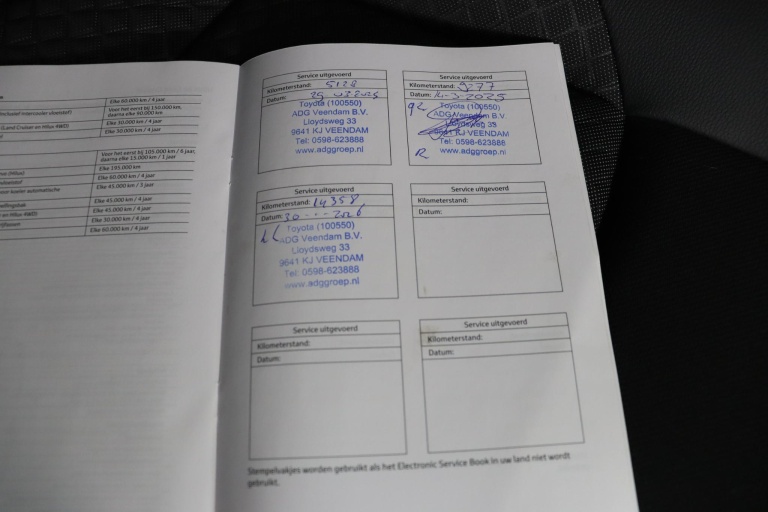 Elke 60.000 km / 4 jaar
Voor het eerst bij 150.000 km,
daarna elke 90.000 km
(Land Cruiser en Hilux 4WD)
Elke 30.000 km / 4 jaar
Elke 30.000 km / 4 jaar
Voor het eerst bij 105.000 km / 6 jaar,
daarna elke 15.000 km / 1 jaar
Elke 195.000 km
Elke 60.000 km / 4 jaar
Elke 45.000 km / 3 jaar
Elke 45.000 km / 4 jaar
en Hilux 4WD)
Elke 45.000 km / 4 jaar
Elke 30.000 km / 4 jaar
Elke 60.000 km / 4 jaar
Service uitgevoerd
Kilometerstand: 5128
Datum:
Toyota (100550)
ADG Veendam B.V.
Lloydsweg 33
9641 KJ VEENDAM
Tel: 0598-623888
www.adggroep.nl
Service uitgevoerd
Kilometerstand: 9277
Datum: 14-3-2025
Toyota (100550)
ADG Veendam B.V.
Lloydsweg 33
9641 KJ VEENDAM
Tel: 0598-623888
www.adggroep.nl
Service uitgevoerd
Kilometerstand: 14358
Datum: 30 2026
Toyota (100550)
ADG Veendam B.V.
Lloydsweg 33
9641 KJ VEENDAM
Tel: 0598-623888
www.adggroep.nl
Service uitgevoerd
Kilometerstand:
Datum:
Service uitgevoerd
Kilometerstand:
Datum:
Service uitgevoerd
Kilometerstand:
Datum:
Stempelvakjes worden gebruikt als het Electronic Service Book in uw land niet wordt
gebruikt.